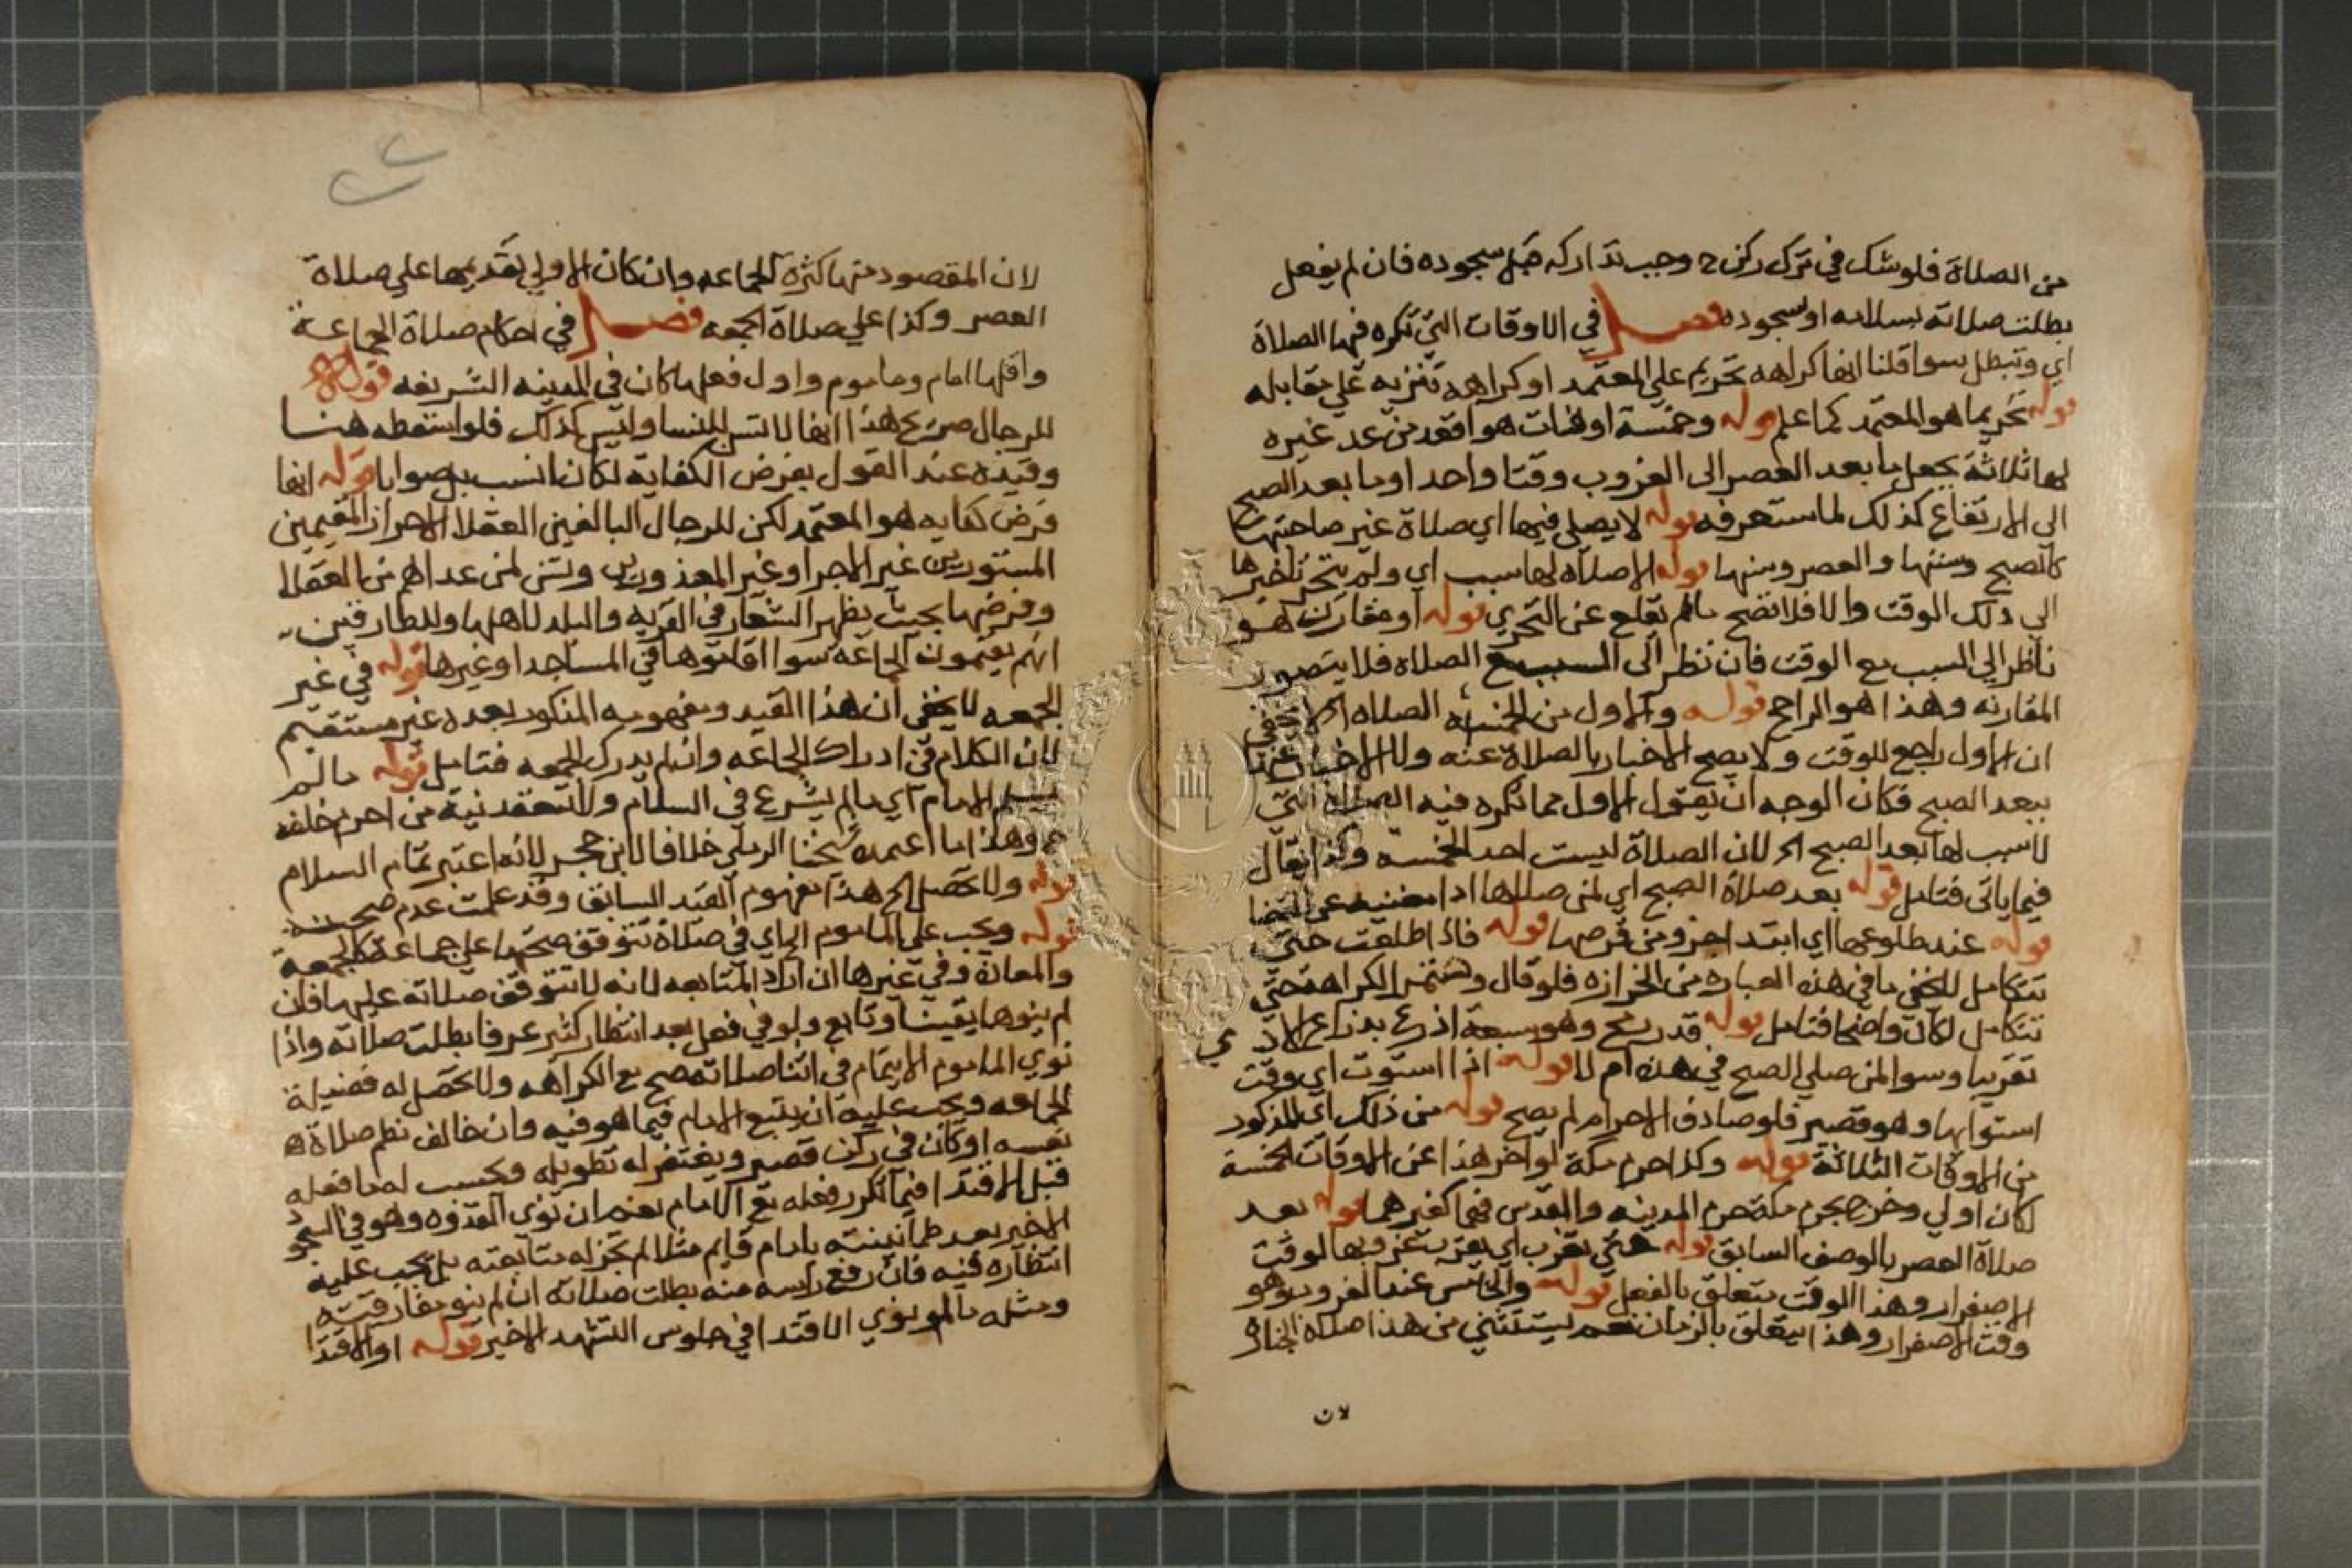 من الصلاة فلو شك في ترك ركن ح وجب تداركه قبل سجوده فان لم يفعل
بطلت صلاته بسلامه او سجوده فصل في الاوقات التي تكره فيها الصلاة
اي وتبطل سوا قلنا انها كراهه تحريم علي المعتمد او كراهه تنزيه علي مقابله
قوله تحريما هو المعتمد كما علم قوله وخمسة اوقات هو اقعد من عد غيره
لها ثلاثة بجعل ما بعد العصر الى الغروب وقتا واحدا وما بعد الصبح
الى الارتفاع كذلك لما ستعرفه قوله لا يصلي فيها اي صلاة غير صاحبتها
كالصبح وسنتها والعصر وسنتها قوله الا صلاة لها سبب اي ولم يتحر تاخيرها
الي ذلك الوقت والا فلا تصح ما لم يقلع عن التحري قوله او مقارن هو
ناظر الي السبب مع الوقت فان نظر الى السبب مع الصلاة فلا يتصور
المقارنه وهذا هو الراجح قوله والاول من الخمسة الصلاة الخ لا يخفى
ان الاول راجع للوقت ولا يصح الاخبار بالصلاة عنه ولا الاخبار عنها
ببعد الصبح فكان الوجه ان يقول الاول مما تكره فيه الصلاة التي
لا سبب لها بعد الصبح الخ لان الصلاة ليست احد الخمسه وكذا يقال
فيما ياتي فتامل قوله بعد صلاة الصبح اي لمن صلاها ادا مغنيه عن القضا
قوله عند طلوعها اي ابتدا جزو من قرصها قوله فاذا طلعت حتى
تتكامل لا يخفى ما في هذه العباره من الحزازه فلو قال وتستمر الكراهة حتي
تتكامل لكان واضحا فتامل قوله قدر رمح وهو سبعة اذرع بذراع الادمي
تقريبا وسوا لمن صلي الصبح في هذه ام لا قوله اذا استوت اي وقت
استوايها وهو قصير فلو صادف الاحرام لم يصح قوله من ذلك اي المذكور
من الاوقات الثلاثة قوله وكذا حرم مكة لو اخر هذا عن الاوقات الخمسة
لكان اولي وخرج بحرم مكة حرم المدينه والقدس فهما كغيرهما قوله بعد
صلاة العصر بالوصف السابق قوله حتي تغرب اي يقرب غروبها لوقت
الاصفرار وهذا الوقت يتعلق بالفعل قوله والخامس عند الغروب وهو
وقت الاصفرار وهذا يتعلق بالزمان نعم يستثني من هذا صلاة الجنازة
لان
لان المقصود منها كثرة الجماعه وان كان الاولي تقديمها علي صلاة
العصر وكذا علي صلاة الجمعه فصل في احكام صلاة الجماعة
واقلها امام وماموم واول فعلها كان في المدينه الشريفه قوله
للرجال صريح هذا انها لا تسن للنسا وليس كذلك فلو اسقطه هنا
وقيده عند القول بفرض الكفاية لكان انسب بل صوابا قوله انها
فرض كفايه هو المعتمد لكن للرجال البالغين العقلا الاحرار المقيمين
المستورين غير الاجرا وغير المعذورين وتسن لمن عداهم من العقلا
وفرضها بحيث يظهر الشعار في القريه والبلد لاهلها وللطارقين
انهم يقيمون الجماعه سوا اقاموها في المساجد او غيرها قوله في غير
الجمعه لا يخفى ان هذا القيد ومفهومه المذكور بعده غير مستقيم
لان الكلام في ادراك الجماعه وان لم يدرك الجمعه فتامل قوله ما لم
يسلم الامام اي ما لم يشرع في السلام ولا تنعقد نية من احرم خلفه
ح وهذا ما اعتمده شيخنا الرملي خلافا لابن حجر لانه اعتبر تمام السلام
قوله ولا تحصل الخ هذا مفهوم القيد السابق وقد علمت عدم صحته
قوله ويجب علي الماموم الخ اي في صلاة تتوقف صحتها علي جماعة كالجمعة
والمعادة وفي غيرها ان اراد المتابعه لانه لا تتوقف صلاته عليها فان
لم ينوها يقينا وتابع ولو في فعل بعد انتظار كثير عرفا بطلت صلاته واذا
نوي الماموم الايتمام في اثنا صلاته صح مع الكراهه ولا تحصل له فضيلة
الجماعه ويجب عليه ان يتبع الامام فيما هو فيه وان خالف نظم صلاة
نفسه او كان في ركن قصير ويغتفر له تطويله ويحسب له ما فعله
قبل الاقتدا فيما تكرر فعله مع الامام نعم ان نوى القدوه وهو في السجود
الاخير بعد طمانينته بامام قايم مثلا لم يجز له متابعته بل يجب عليه
انتظاره فيه فان رفع راسه منه بطلت صلاته ان لم ينو مفارقته
ومثله ما لو نوي الاقتدا في جلوس التشهد الاخير قوله او الاقتدا